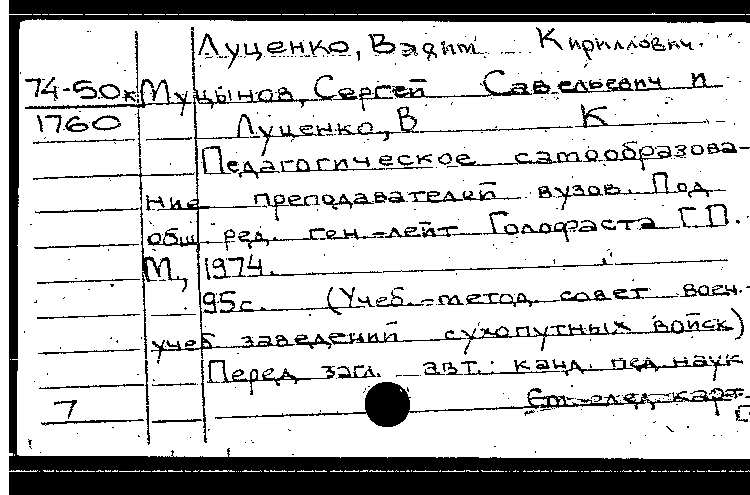 Луценко, Вадим Кириллович.
74-50к Муцынов, Сергей Савельевич и
1760 Луценко, В К
Педагогическое самообразова-
ние преподавателей вузов. Под
общ. ред. ген.-лейт Голофаста Г.П.
М., 1974.
95с. (Учеб.-метод. совет воен.-
учеб заведений сухопутных войск)
Перед загл. авт.: канд. пед. наук
7 См. след. карт.